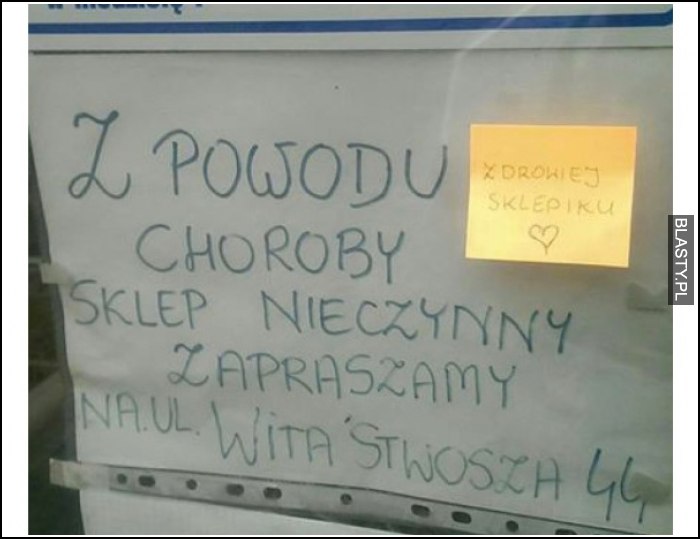 Z POWODU
CHOROBY
SKLEP NIECZYNNY
ZAPRASZAMY
NA.UL. WITA STWOSZA 44
ZDROWIEJ
SKLEPIKU
♡
BLASTY.PL